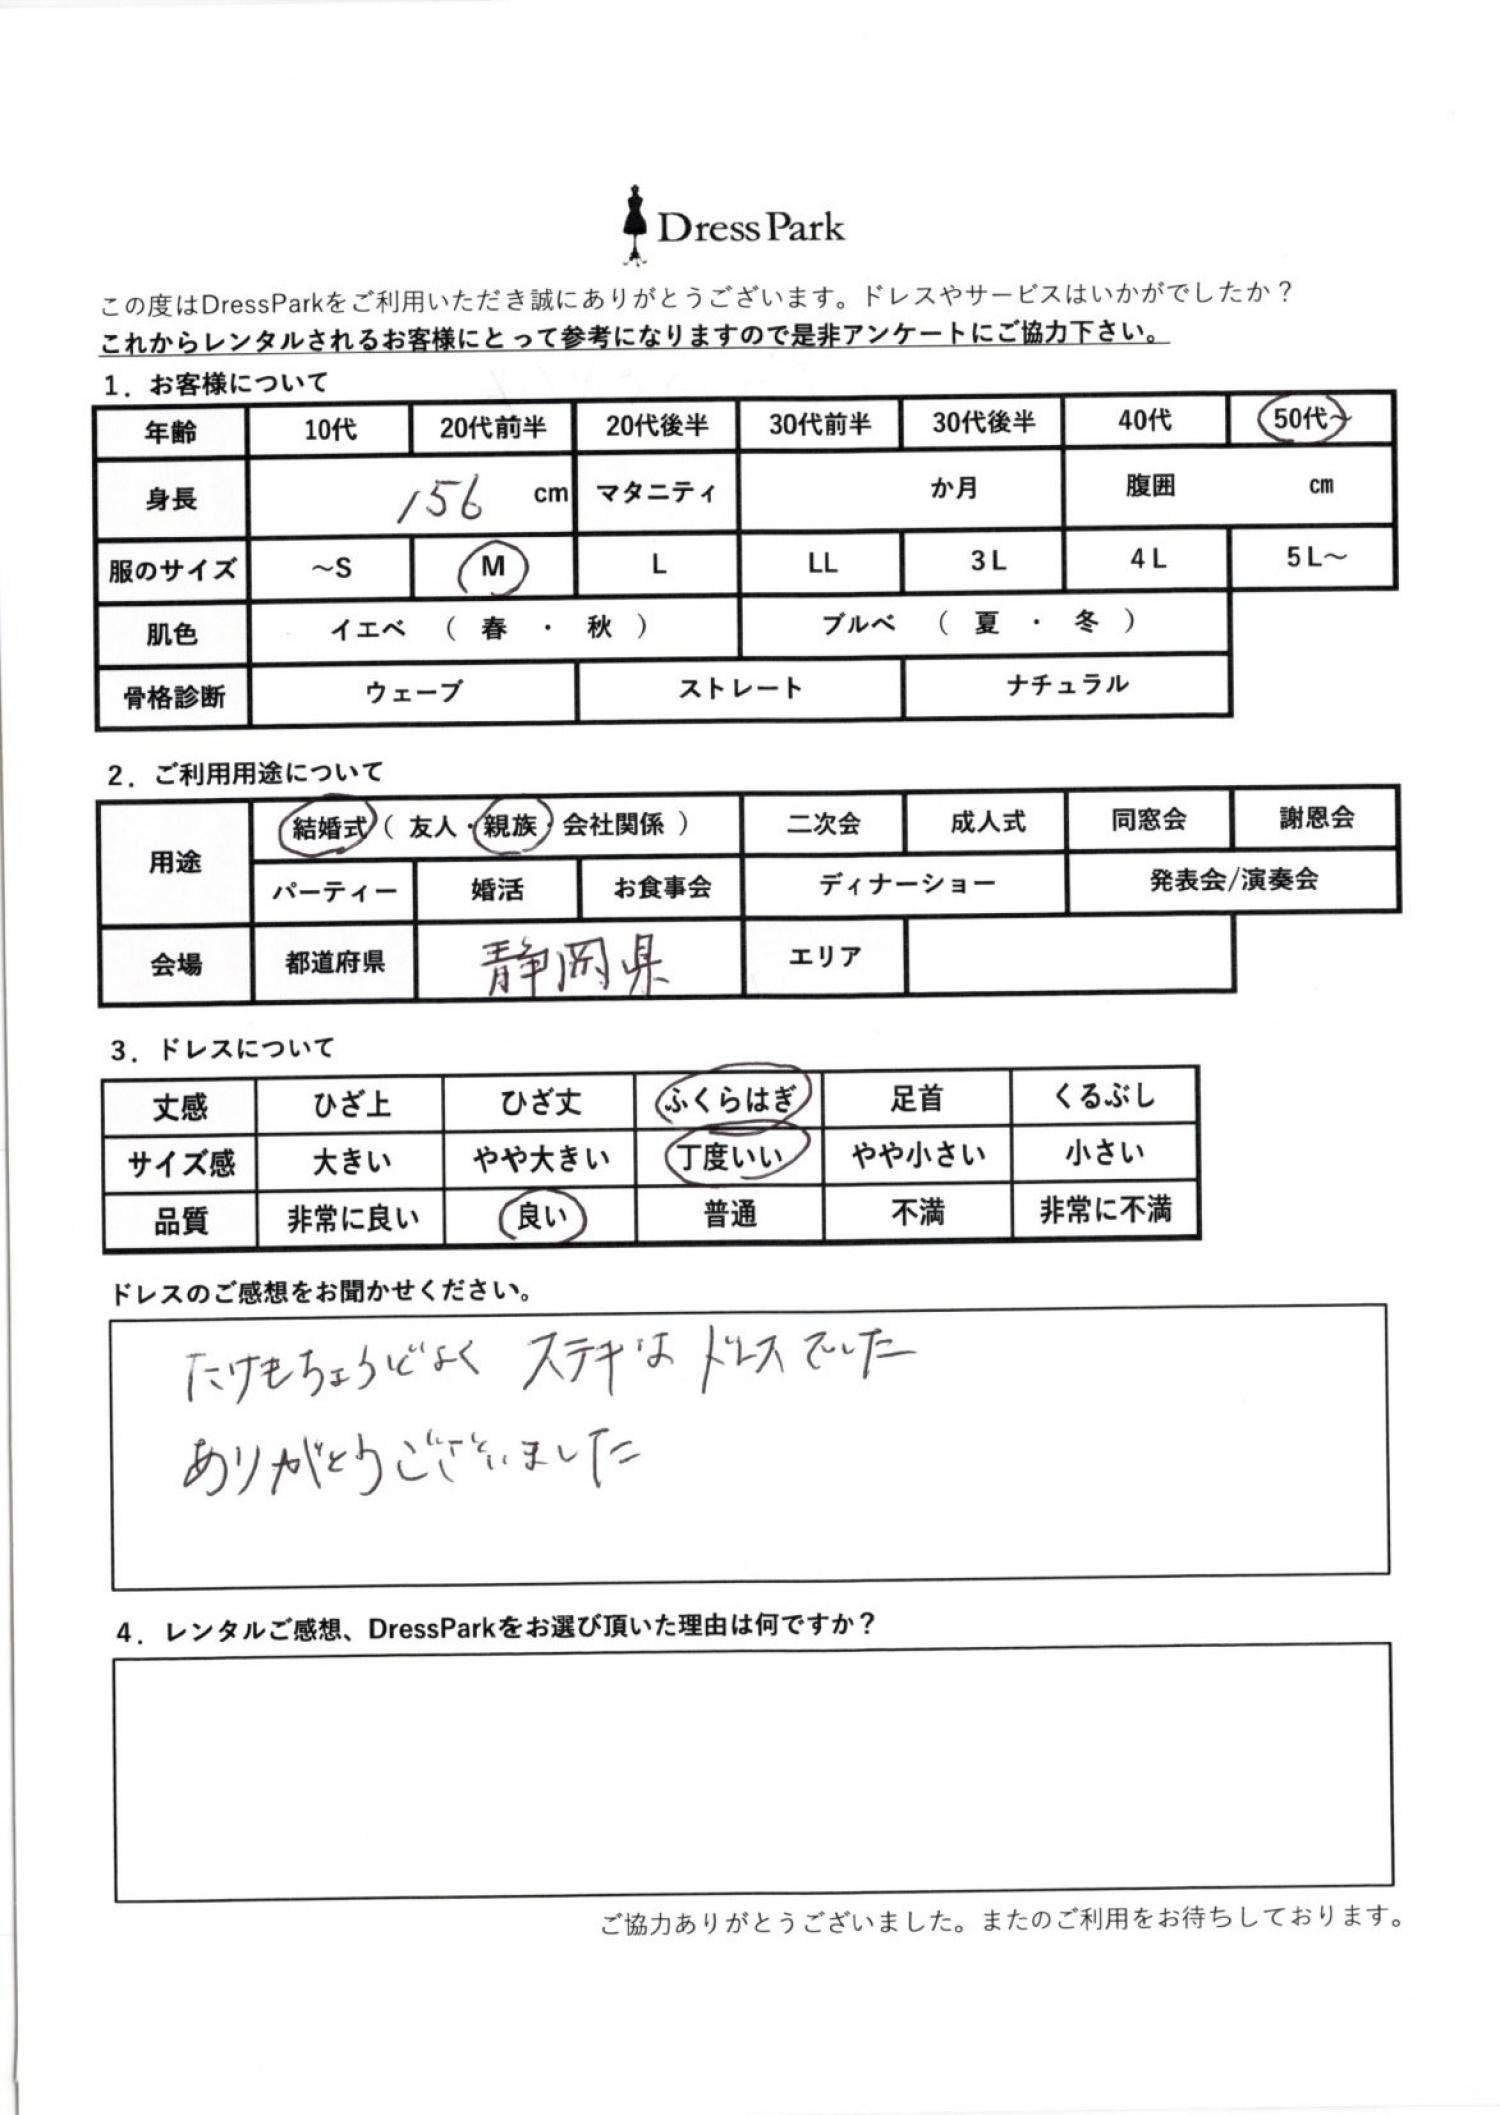 Dress Park
この度はDressParkをご利用いただき誠にありがとうございます。ドレスやサービスはいかがでしたか？
これからレンタルされるお客様にとって参考になりますので是非アンケートにご協力下さい。
1．お客様について
年齢 10代 20代前半 20代後半 30代前半 30代後半 40代 50代～
身長 156 cm マタニティ か月 腹囲 cm
服のサイズ ～S M L LL 3L 4L 5L～
肌色 イエベ （ 春 ・ 秋 ） ブルベ （ 夏 ・ 冬 ）
骨格診断 ウェーブ ストレート ナチュラル
2．ご利用用途について
用途 結婚式（ 友人・親族・会社関係 ） 二次会 成人式 同窓会 謝恩会
パーティー 婚活 お食事会 ディナーショー 発表会/演奏会
会場 都道府県 静岡県 エリア
3．ドレスについて
丈感 ひざ上 ひざ丈 ふくらはぎ 足首 くるぶし
サイズ感 大きい やや大きい 丁度いい やや小さい 小さい
品質 非常に良い 良い 普通 不満 非常に不満
ドレスのご感想をお聞かせください。
たけもちょうどよく ステキな ドレスでした
ありがとうございました
4．レンタルご感想、DressParkをお選び頂いた理由は何ですか？
ご協力ありがとうございました。またのご利用をお待ちしております。